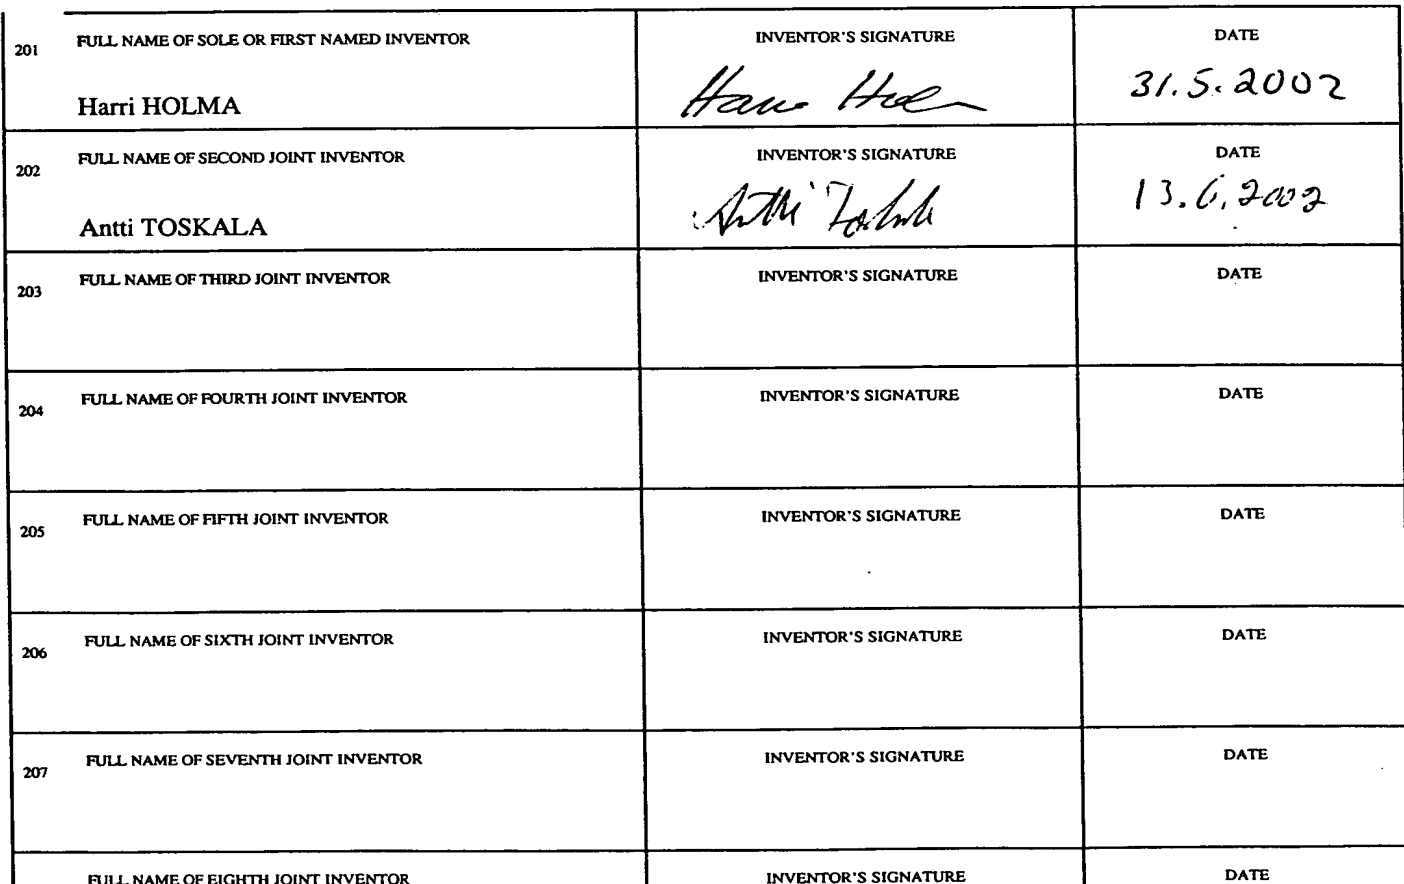 201 FULL NAME OF SOLE OR FIRST NAMED INVENTOR INVENTOR'S SIGNATURE DATE
Harri HOLMA 31.5.2002
202 FULL NAME OF SECOND JOINT INVENTOR INVENTOR'S SIGNATURE DATE
Antti TOSKALA Antti Toskala 13.6.2002
203 FULL NAME OF THIRD JOINT INVENTOR INVENTOR'S SIGNATURE DATE
204 FULL NAME OF FOURTH JOINT INVENTOR INVENTOR'S SIGNATURE DATE
205 FULL NAME OF FIFTH JOINT INVENTOR INVENTOR'S SIGNATURE DATE
206 FULL NAME OF SIXTH JOINT INVENTOR INVENTOR'S SIGNATURE DATE
207 FULL NAME OF SEVENTH JOINT INVENTOR INVENTOR'S SIGNATURE DATE
FULL NAME OF EIGHTH JOINT INVENTOR INVENTOR'S SIGNATURE DATE